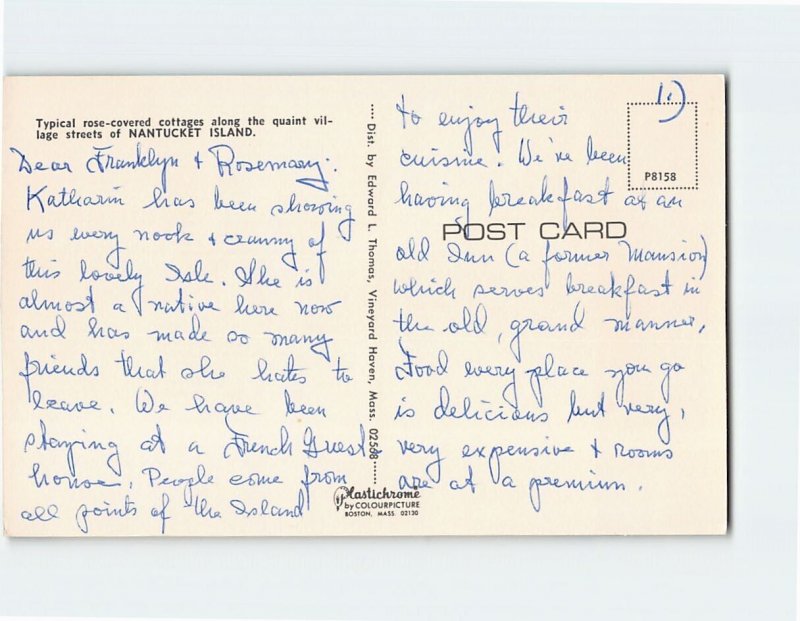 Typical rose-covered cottages along the quaint vil-
lage streets of NANTUCKET ISLAND.
Dear Franklyn + Rosemary:
Katharin has been showing
us every nook + cranny of
this lovely Isle. She is
almost a native here now
and has made so many
friends that she hates to
leave. We have been
staying at a French Guest
house. People come from
all points of the Island
Dist. by Edward L. Thomas, Vineyard Haven, Mass. 02568
Plastichrome
by COLOURPICTURE
BOSTON, MASS. 02130
1.)
P8158
POST CARD
to enjoy their
cuisine. We've been
having breakfast at an
old Inn (a former Mansion)
which serves breakfast in
the old, grand manner.
Food every place you go
is delicious but very,
very expensive + rooms
are at a premium.